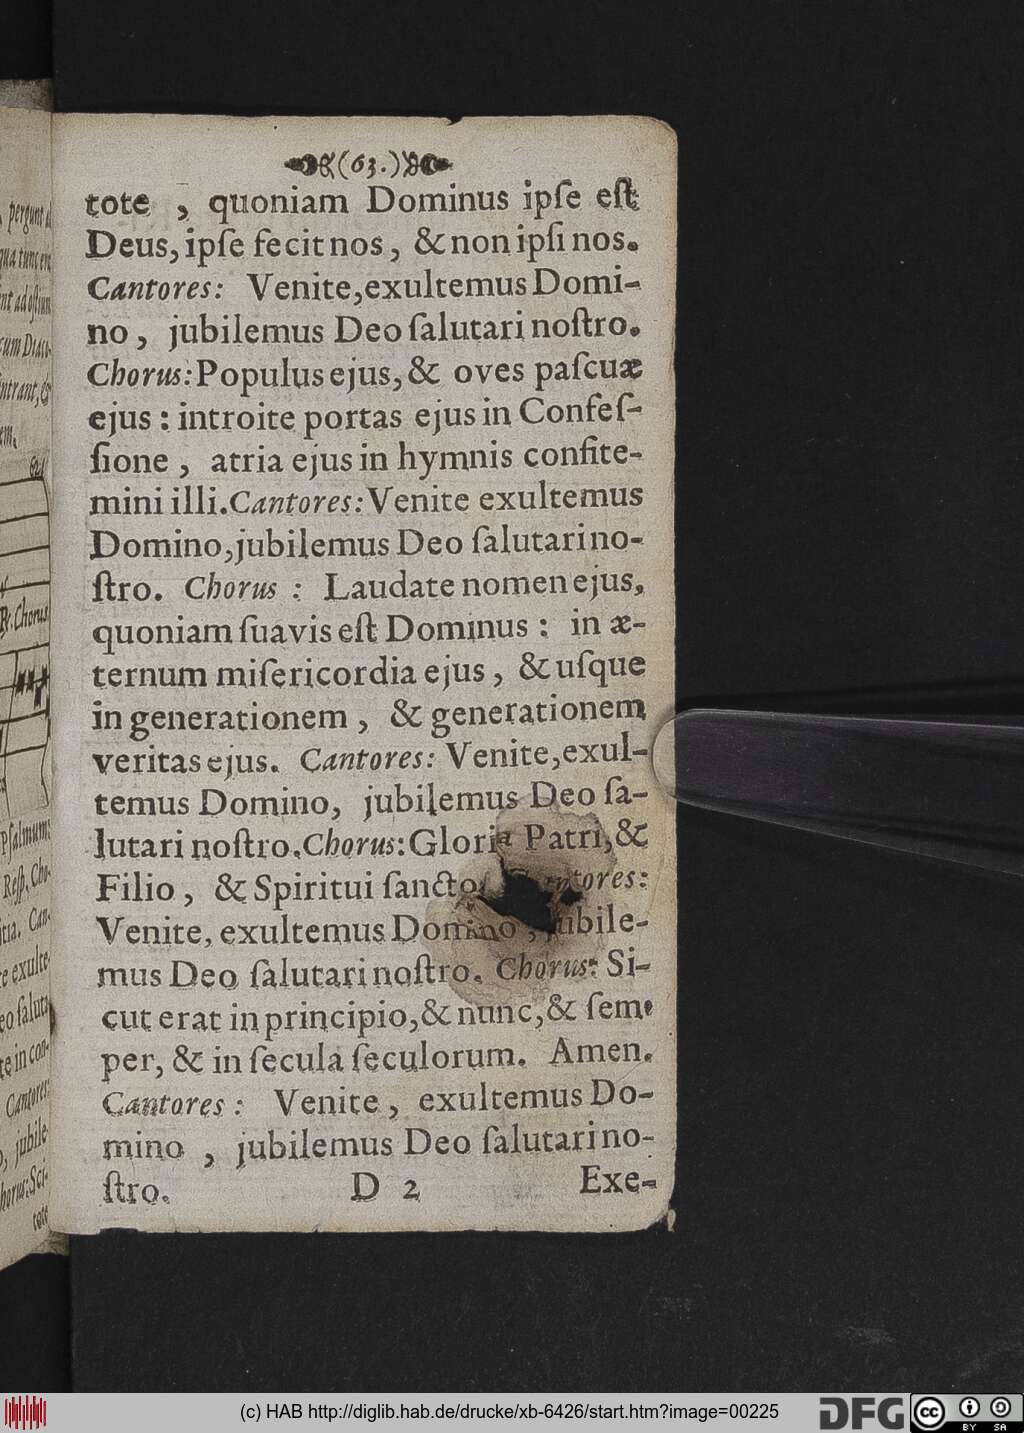 (63.)
tote , quoniam Dominus ipſe eſt
Deus, ipſe fecit nos , & non ipſi nos.
Cantores: Venite, exultemus Domi-
no , jubilemus Deo ſalutari noſtro.
Chorus: Populus ejus, & oves paſcuæ
ejus : introite portas ejus in Confeſ-
ſione , atria ejus in hymnis confite-
mini illi. Cantores: Venite exultemus
Domino, jubilemus Deo ſalutari no-
ſtro. Chorus : Laudate nomen ejus,
quoniam ſuavis eſt Dominus : in æ-
ternum miſericordia ejus , & uſque
in generationem , & generationem
veritas ejus. Cantores: Venite, exul-
temus Domino, jubilemus Deo ſa-
lutari noſtro. Chorus: Gloria Patri, &
Filio , & Spiritui ſancto. Cantores:
Venite, exultemus Domino , jubile-
mus Deo ſalutari noſtro. Chorus: Si-
cut erat in principio, & nunc, & ſem-
per, & in ſecula ſeculorum. Amen.
Cantores : Venite , exultemus Do-
mino , jubilemus Deo ſalutari no-
ſtro. D 2 Exe-
(c) HAB http://diglib.hab.de/drucke/xb-6426/start.htm?image=00225
DFG
cc BY SA